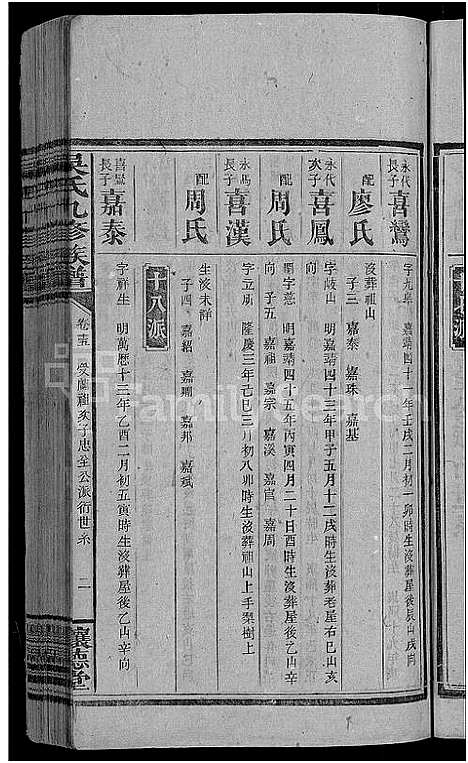 永代長子 喜鸞
字九皋 嘉靖四十一年壬戌二月初一卯時生沒葬屋後辰山戌向
配 廖氏
沒葬祖山
子三 嘉泰 嘉珠 嘉基
永代次子 喜鳳
字岐山 明嘉靖四十三年甲子五月十二戌時生沒葬老屋右巳山亥向
配 周氏
明嘉靖四十五年丙寅四月二十日酉時生沒葬屋後乙山辛向
子五 嘉祖 嘉宗 嘉溪 嘉宦 嘉周
長子 喜漢
字立 隆慶三年己巳三月初八卯時生沒葬祖山上手梨樹上
配 周氏
生沒未詳
子四 嘉紹 嘉 嘉邦 嘉斌
十八派
喜鸞長子 嘉泰
字祥生 明萬曆十三年乙酉二月初五寅時生沒葬屋後乙山辛向
吳氏九修族譜
卷 受 祖次子忠全公派衍世系
一
讓德堂
FamilySearch